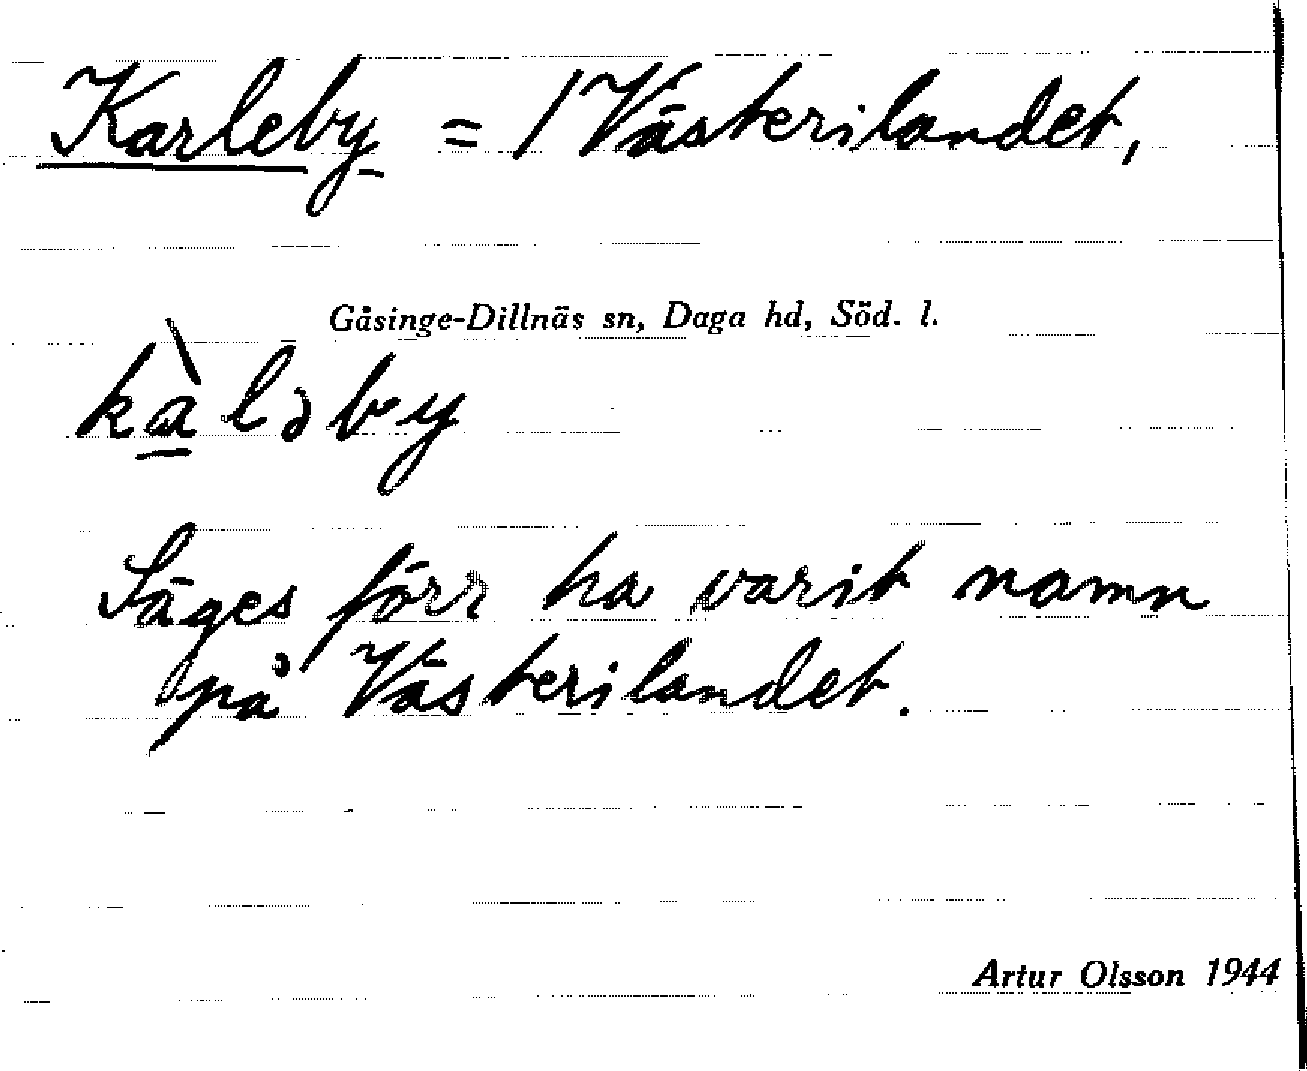 Karleby = / Västerilandet,
Gåsinge-Dillnäs sn, Daga hd, Söd. l.
kàləby
Säges förr ha varit namn
på Västerilandet.
Artur Olsson 1944